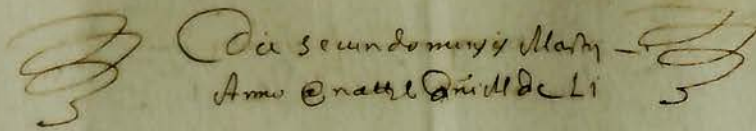 Die secundo mensis Martij
Anno a natte Dñi M dc Li